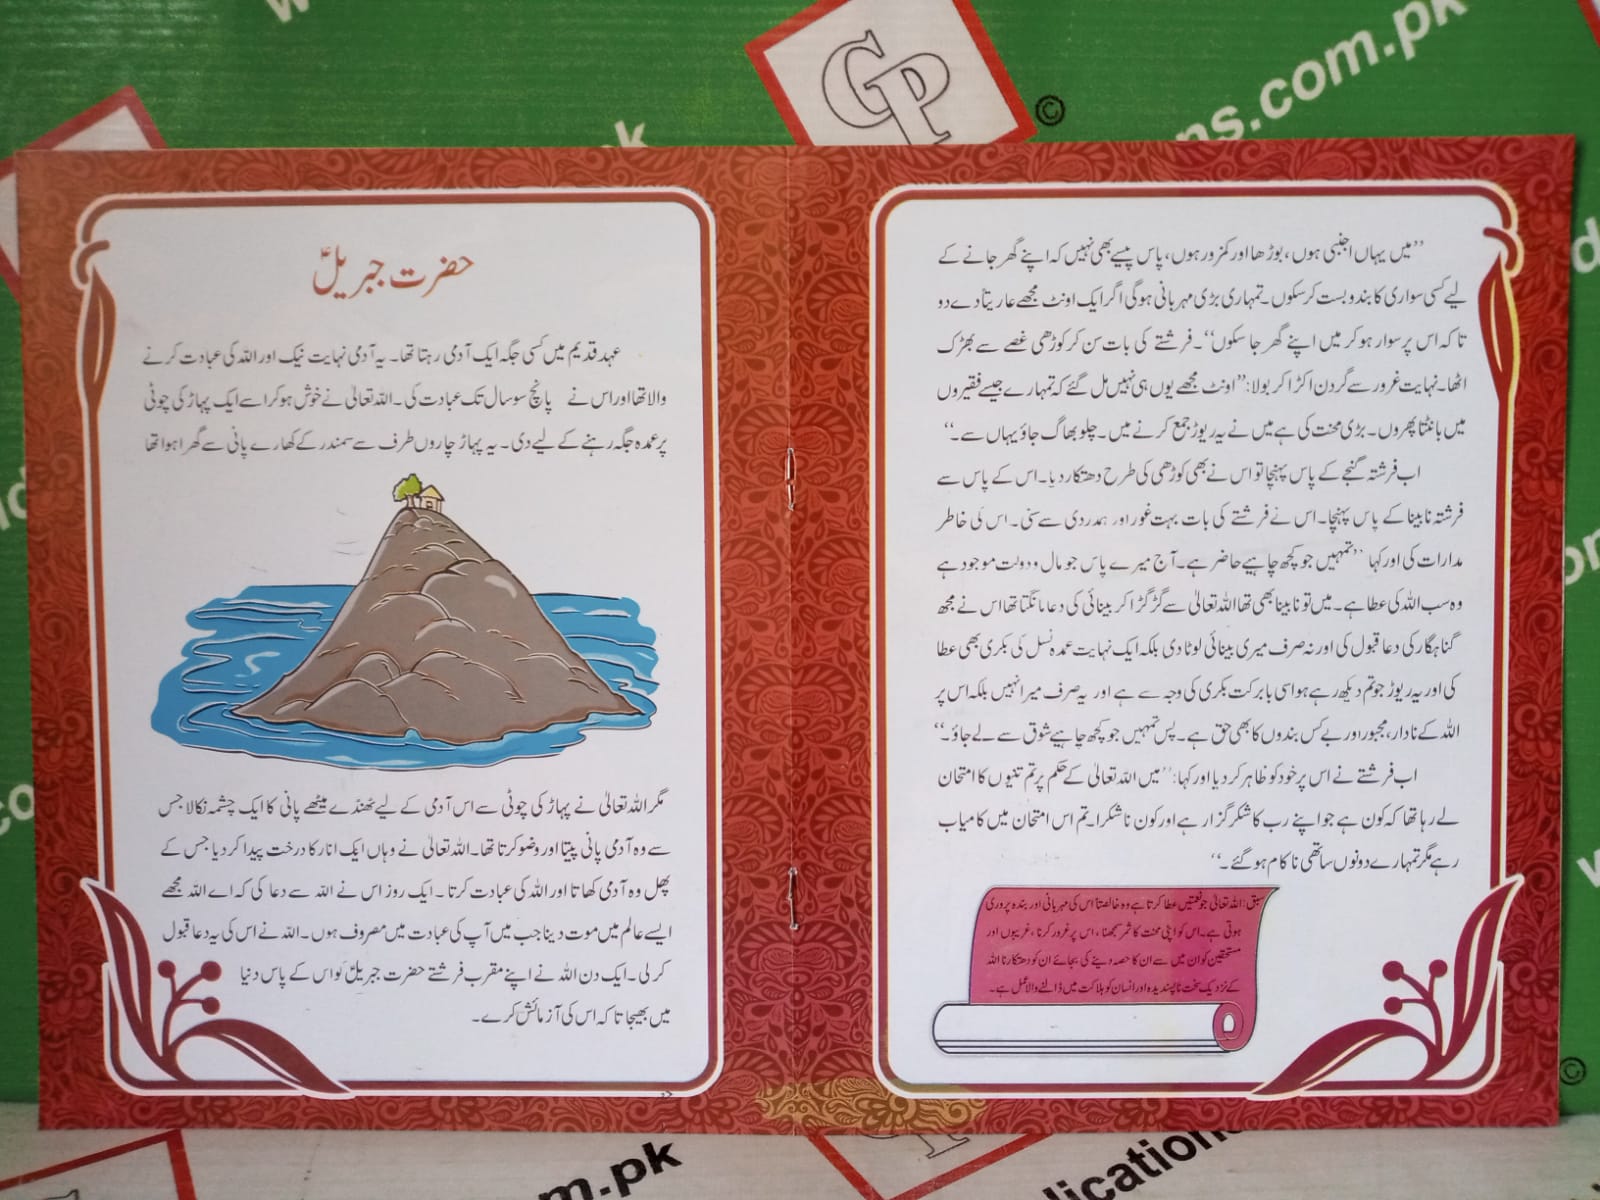 ”میں یہاں اجنبی ہوں، بوڑھا اور کمزور ہوں، پاس پیسے بھی نہیں کہ اپنے گھر جانے کے
لیے کسی سواری کا بندوبست کر سکوں۔ تمہاری بڑی مہربانی ہوگی اگر ایک اونٹ مجھے عاریتاً دے دو
تاکہ اس پر سوار ہو کر میں اپنے گھر جا سکوں“۔ فرشتے کی بات سن کر کوڑھی غصے سے بھڑک
اٹھا۔ نہایت غرور سے گردن اکڑا کر بولا: ”اونٹ مجھے یوں ہی نہیں مل گئے کہ تمہارے جیسے فقیروں
میں بانٹتا پھروں۔ بڑی محنت کی ہے میں نے یہ ریوڑ جمع کرنے میں۔ چلو بھاگ جاؤ یہاں سے۔“
اب فرشتہ گنجے کے پاس پہنچا تو اس نے بھی کوڑھی کی طرح دھتکار دیا۔ اس کے پاس سے
فرشتہ نابینا کے پاس پہنچا۔ اس نے فرشتے کی بات بہت غور اور ہمدردی سے سنی۔ اس کی خاطر
مدارات کی اور کہا ”تمہیں جو کچھ چاہیے حاضر ہے۔ آج میرے پاس جو مال و دولت موجود ہے
وہ سب اللہ کی عطا ہے۔ میں تو نابینا بھی تھا اللہ تعالیٰ سے گڑگڑا کر بینائی کی دعا مانگتا تھا اس نے مجھ
گناہگار کی دعا قبول کی اور نہ صرف میری بینائی لوٹا دی بلکہ ایک نہایت عمدہ نسل کی بکری بھی عطا
کی اور یہ ریوڑ جو تم دیکھ رہے ہو اسی بابرکت بکری کی وجہ سے ہے اور یہ صرف میرا نہیں بلکہ اس پر
اللہ کے نادار، مجبور اور بے کس بندوں کا بھی حق ہے۔ پس تمہیں جو کچھ چاہیے شوق سے لے جاؤ۔“
اب فرشتے نے اس پر خود کو ظاہر کر دیا اور کہا: ”میں اللہ تعالیٰ کے حکم پر تم تینوں کا امتحان
لے رہا تھا کہ کون ہے جو اپنے رب کا شکر گزار ہے اور کون ناشکرا۔ تم اس امتحان میں کامیاب
رہے مگر تمہارے دونوں ساتھی ناکام ہو گئے۔“
سبق: اللہ تعالیٰ جو نعمتیں عطا کرتا ہے وہ خالصتاً اس کی مہربانی اور بندہ پروری
ہوتی ہے۔ اس کو اپنی محنت کا ثمر سمجھنا، اس پر غرور کرنا، غریبوں اور
مستحقین کو ان میں سے ان کا حصہ دینے کی بجائے ان کو دھتکارنا اللہ
کے نزدیک سخت ناپسندیدہ اور انسان کو ہلاکت میں ڈالنے والا عمل ہے۔
حضرت جبریلؑ
عہد قدیم میں کسی جگہ ایک آدمی رہتا تھا۔ یہ آدمی نہایت نیک اور اللہ کی عبادت کرنے
والا تھا اور اس نے پانچ سو سال تک عبادت کی۔ اللہ تعالیٰ نے خوش ہو کر اسے ایک پہاڑ کی چوٹی
پر عمدہ جگہ رہنے کے لیے دی۔ یہ پہاڑ چاروں طرف سے سمندر کے کھارے پانی سے گھرا ہوا تھا
مگر اللہ تعالیٰ نے پہاڑ کی چوٹی سے اس آدمی کے لیے ٹھنڈے میٹھے پانی کا ایک چشمہ نکالا جس
سے وہ آدمی پانی پیتا اور وضو کرتا تھا۔ اللہ تعالیٰ نے وہاں ایک انار کا درخت پیدا کر دیا جس کے
پھل وہ آدمی کھاتا اور اللہ کی عبادت کرتا۔ ایک روز اس نے اللہ سے دعا کی کہ اے اللہ مجھے
ایسے عالم میں موت دینا جب میں آپ کی عبادت میں مصروف ہوں۔ اللہ نے اس کی یہ دعا قبول
کر لی۔ ایک دن اللہ نے اپنے مقرب فرشتے حضرت جبریلؑ کو اس کے پاس دنیا
میں بھیجا تاکہ اس کی آزمائش کرے۔
GP
©
ns.com.pk
.pk
©
m.pk
lications